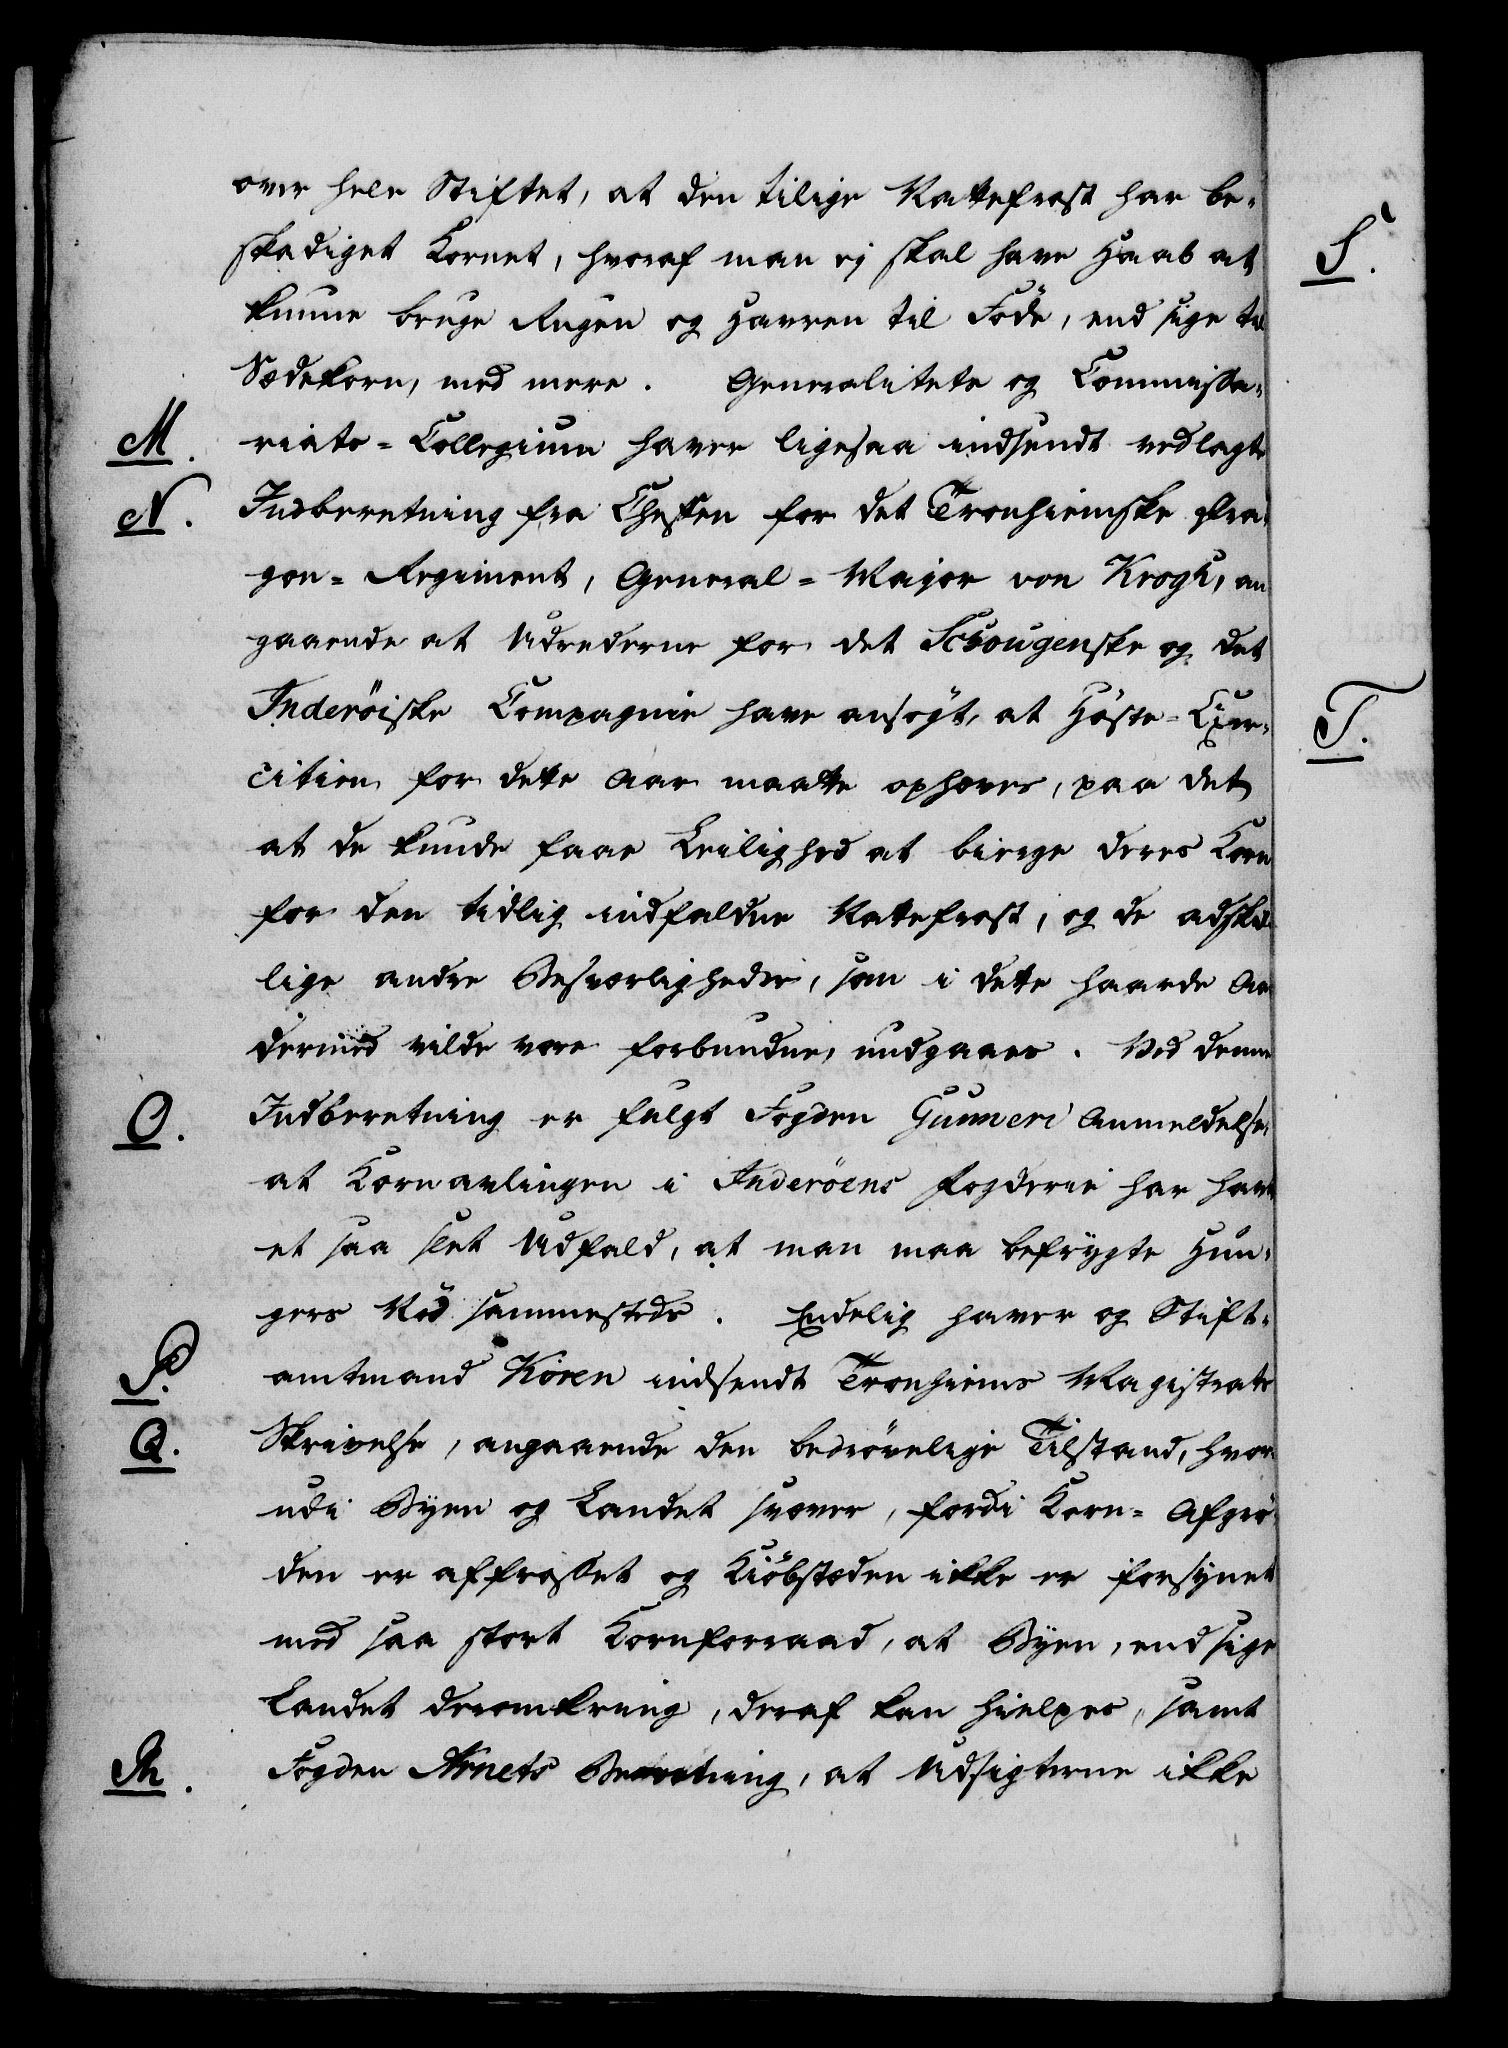 over hele Stiftet, at den tilige Nattefrost har be-
skadiget Kornet, hvoraf man ej skal have Haab at
kunne bruge Rugen og Havren til Föde, end sige til
Sædekorn, med mere. Generalitets og Commissa-
M. riats-Collegium haver ligesaa indsendt vedlagte
N. Indberetning fra Cheffen for det Tronhiemske Dra-
gon-Regiment, General-Major von Krogh, an
gaaende at Udrederne for det Schougenske og det
Inderöiske Compagnie have ansögt, at Höste-Exer-
citien for dette Aar maatte ophæves, paa det
at de kunde faae Leilighed at bierge deres Korn
for den tidlig indfaldne Nattefrost, og de adskil
lige andre Besværligheder, som i dette haarde Aar
dermed vilde være forbundne, undgaaes. Ved denne
O. Indberetning er fulgt Fogden Gunneri Anmeldelse,
at Kornavlingen i Inderöens Fogderie har havt
et saa slet Udfald, at man maa befrygte Hun-
gers Nöd sammesteds. Endelig haver og Stift-
P. amtmand Kören indsendt Tronhiems Magistrats
Q. Skrivelse, angaaende den bedrövelige Tilstand, hvor-
udi Byen og Landet svæver, fordi Korn-Afgrö-
den er affrosset og Kiöbstæden ikke er forsynet
med saa stort Kornforraad, at Byen, end sige
Landet deromkring, deraf kan hielpes, samt
R. Fogden Arnets Beretning, at Udsigterne ikke
S.
T.